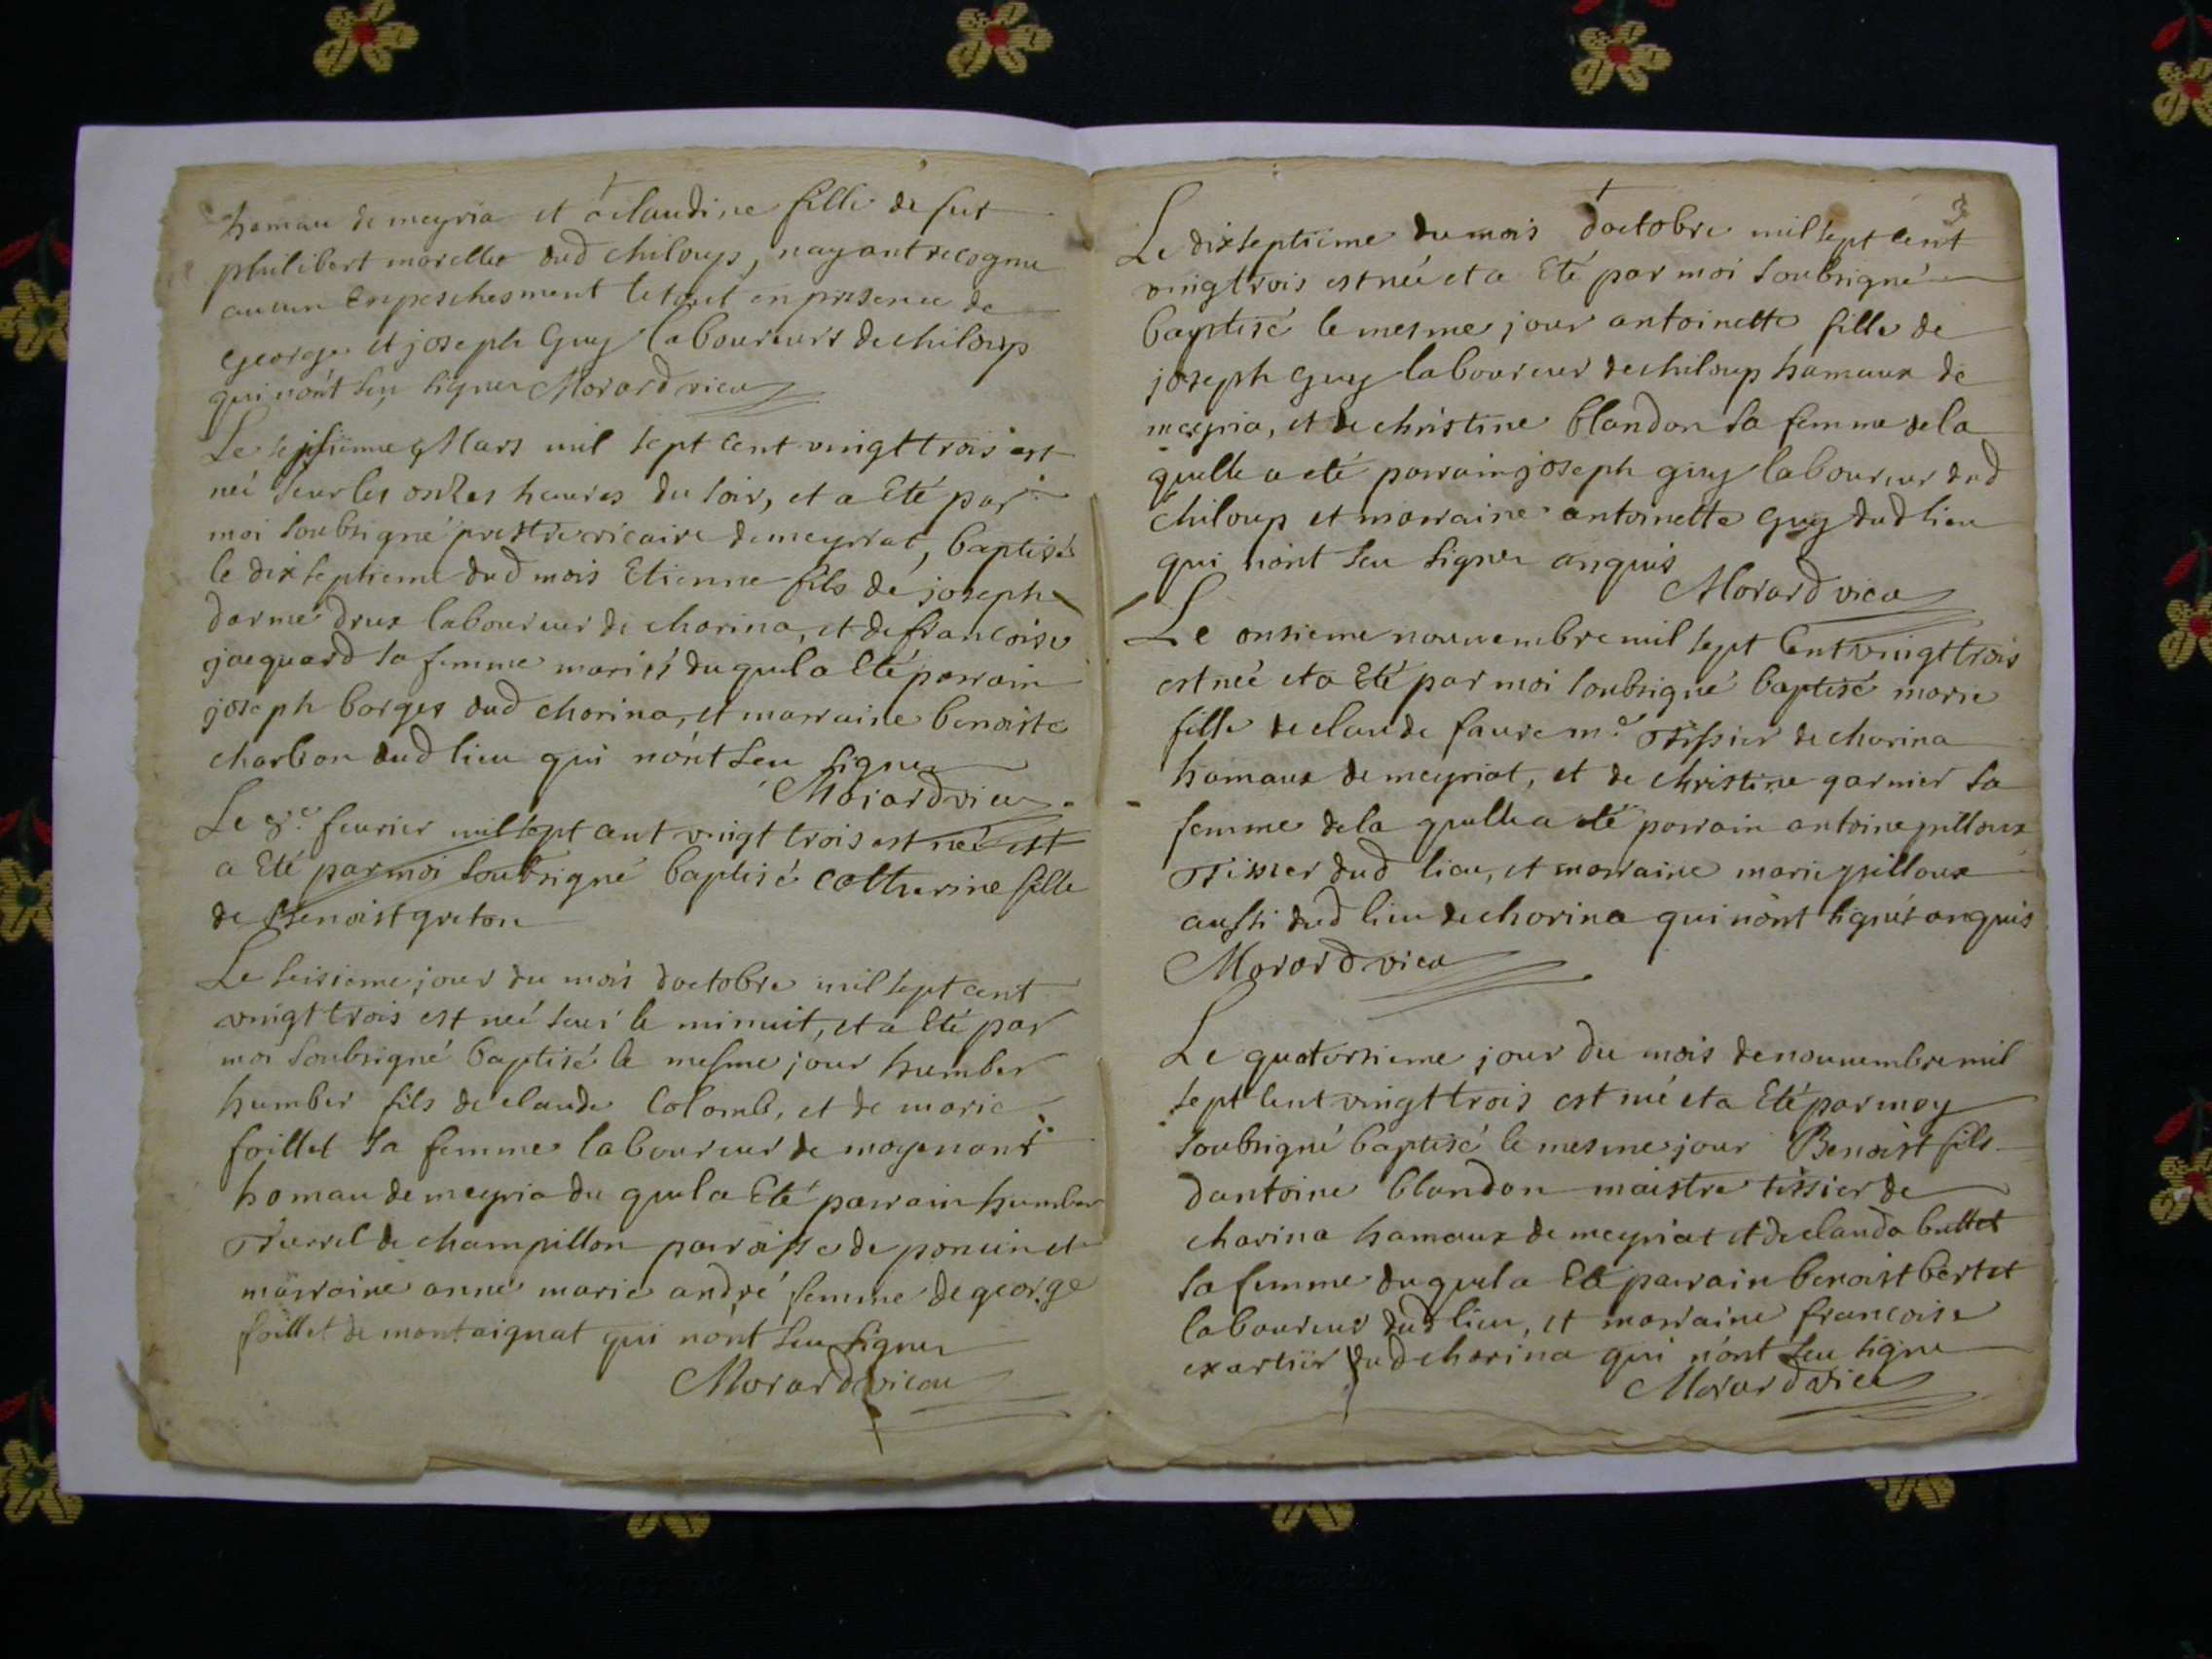 hamau de meyria et a claudine fille de fut
philibert morellet dud chiloup, nayant recognu
aucun Enpeschesment le tout en presence de
george et joseph Guy laboureurs de chiloup
qui nont seu signer Morard vica
Le Mars mil sept cent vingt trois est
né seur les onzes heures du soir, et a Eté par
moi soubsigné prestre vicaire de meyriat, baptisés
le dix septieme dud mois Etienne fils de joseph
darme drux laboureur de chorina, et de francoise
jacquard sa femme mariés du quel a Eté parrain
joseph borges dud chorina, et marraine benoiste
charbon dud lieu qui nont seu signer
Morard vica
Le 8.e feurier mil sept cent vingt trois est né est
a Eté par moi soubsigné baptisé catherine fille
de Benoist greton
Le seisieme jour du mois doctobre mil sept cent
vingt trois est né seur le minuit, et a Eté par
moi soubsigné baptisé le mesme jour humber
humber fils de claude Colomb, et de marie
foillet sa femme laboureur de moyenant
hamau de meyria du quel a Eté parrain humber
de champillon parroisse de poncin et
marraine anne marie andré femme de george
foillet de montaignat qui nont seu signer
Morard vicau
3
Le dixseptiéme du mois doctobre mil sept cent
vingtrois est née et a Eté par moi soubsigné
baptisé le mesme jour antoinette fille de
joseph Guy laboureur de chiloup hamaux de
meyria, et de christine blandon sa femme de la
quelle a eté parrain joseph guy laboureur dud
chiloup et marraine antoinette Guy dud lieu
qui nont seu signer enquis
Morard vica
Le onsieme nouuembre mil sept Cent vingt trois
est née et a Eté par moi soubsigné baptisé marie
fille de claude faure m.e Tissier de chorina
hamaux de meyriat, et de christine garnier sa
femme de la quelle a eté parrain antoine
Tissier dud lieu, et marraine marie
aussi dud lieu de chorina qui nont signés enquis
Morard vica
Le quatorsieme jour du mois de nouuembre mil
sept cent vingt trois est né et a Eté par moy
soubsigné baptisé le mesme jour Benoist fils
dantoine blandon maistre tissier de
chorina hamaux de meyriat et de clauda buttet
sa femme du quel a Eté parrain benoist bertet
laboureur dud lieu, et marraine francoise
exartier dud chorina qui nont seu signe
Morard vica